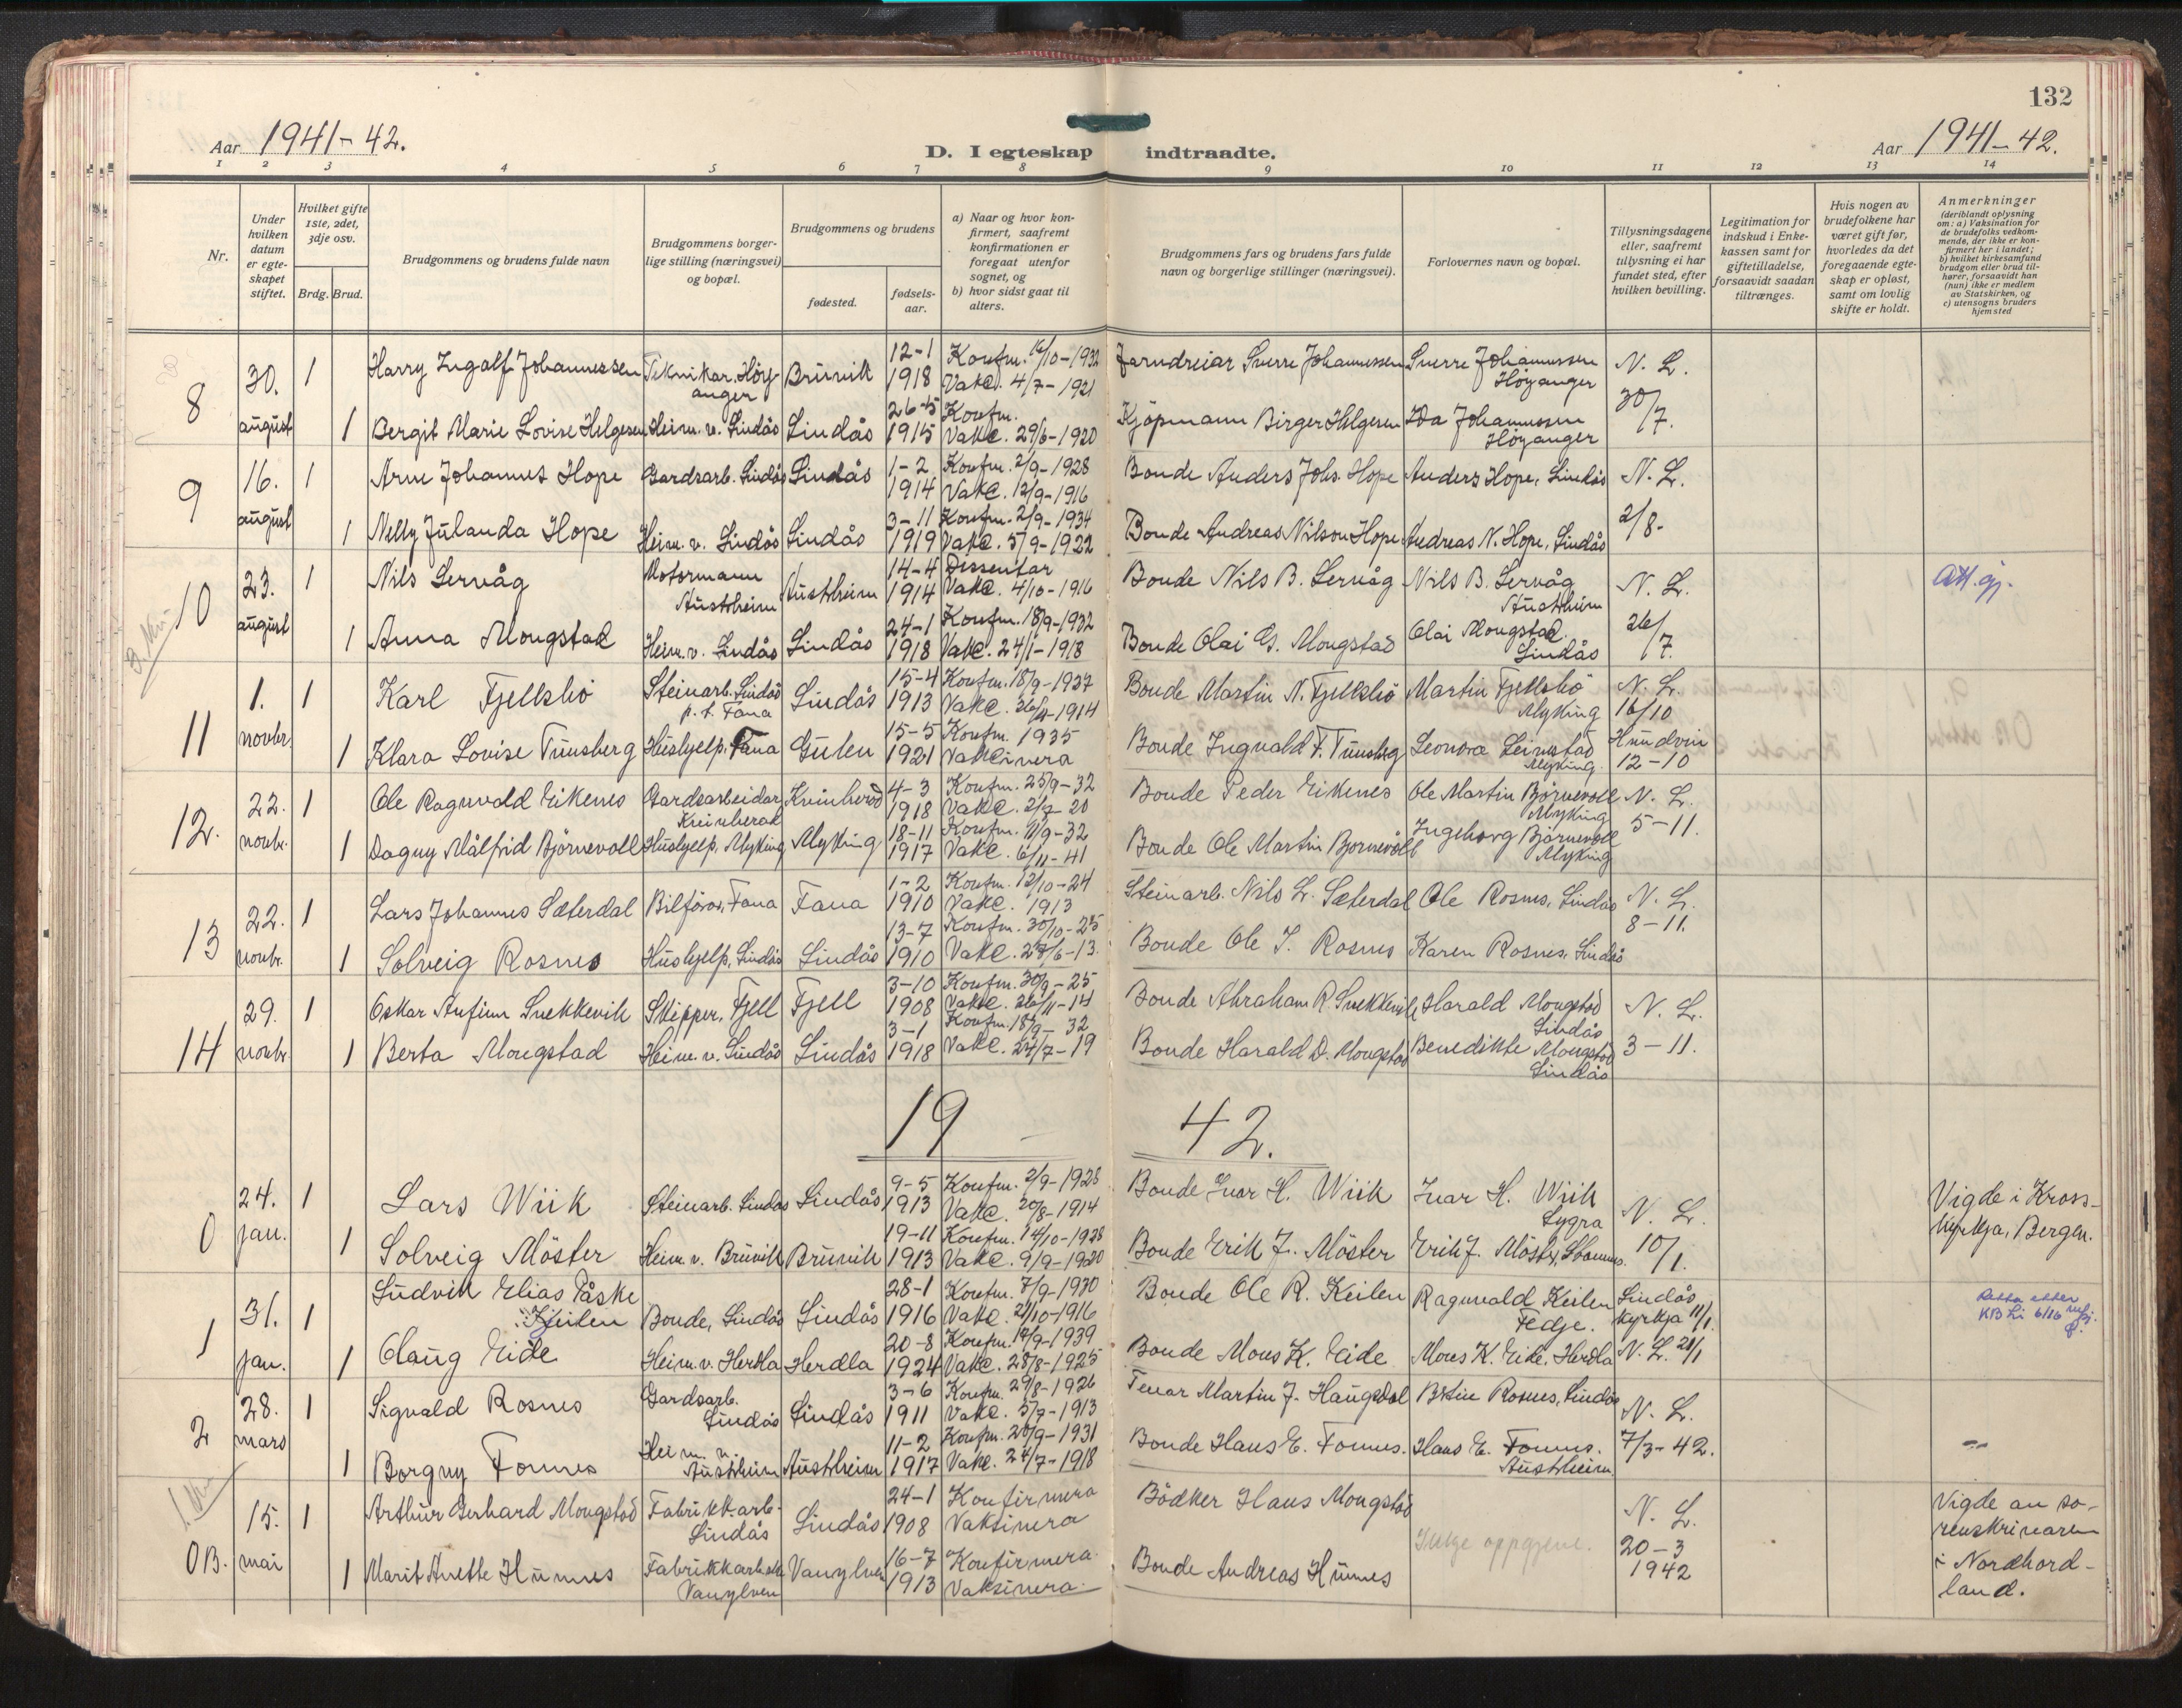 132
Aar 1941-42.
D. I egteskap indtraadte.
Aar 1941-42.
1 2 3 4 5 6 7 8 9 10 11 12 13 14
Nr.
Under hvilken datum er egteskapet stiftet.
Hvilket gifte 1ste, 2det, 3dje osv.
Brdg. Brud.
Brudgommens og brudens fulde navn
Brudgommens borgerlige stilling (næringsvei) og bopæl.
Brudgommens og brudens
fødested.
fødselsaar.
a) Naar og hvor konfirmert, saafremt konfirmationen er foregaat utenfor sognet, og
b) hvor sidst gaat til alters.
Brudgommens fars og brudens fars fulde navn og borgerlige stillinger (næringsvei).
Forlovernes navn og bopæl.
Tillysningsdagene eller, saafremt tillysning ei har fundet sted, efter hvilken bevilling.
Legitimation for indskud i Enkekassen samt for giftetilladelse, forsaavidt saadan tiltrænges.
Hvis nogen av brudefolkene har været gift før, hvorledes da det foregaaende egteskap er opløst, samt om lovlig skifte er holdt.
Anmerkninger
(deriblandt oplysning om: a) Vaksination for de brudefolks vedkommende, der ikke er konfirmert her i landet; b) hvilket kirkesamfund brudgom eller brud tilhører, forsaavidt han (hun) ikke er medlem av Statskirken, og c) utensogns bruders hjemsted
8 30. august 1 Harry Ingolf Johannessen Teknikar, Höyanger Bruvik 12-1 1918 Konfm. 16/10-1932 Vakc. 4/7-1921 Jarndreiar Sverre Johannessen Sverre Johannessen Höyanger N. L. 30/7.
1 Bergit Marie Lovise Helgesen Heim. v. Lindås Lindås 26-5 1915 Konfm. Vakc. 29/6-1920 Kjöpmann Birger Helgesen Ida Johannessen Höyanger
9 16. august 1 Arne Johannes Hope Gardsarb. Lindås Lindås 1-2 1914 Konfm. 2/9-1928 Vakc. 12/9-1916 Bonde Anders Johs. Hope Anders Hope, Lindås N. L. 2/8-
1 Nelly Julanda Hope Heim. v. Lindås Lindås 3-11 1919 Konfm. 2/9-1934 Vakc. 5/9-1922 Bonde Andreas Nilson Hope Andreas N. Hope, Lindås
10 23. august 1 Nils Lervåg Motormann Austrheim Austrheim 14-4 1914 Dissentar Vakc. 4/10-1916 Bonde Nils B. Lervåg Nils B. Lervåg Austrheim N. L. 26/7. Att. gj.
1 Anna Mongstad Heim. v. Lindås Lindås 24-1 1918 Konfm. 18/9-1932 Vakc. 24/1-1918 Bonde Olai G. Mongstad Olai Mongstad. Lindås
11 1. novbr. 1 Karl Fjellsbö Steinarb. Lindås p. t. Fana Lindås 15-4 1913 Konfm. 18/9-1927 Vakc. 1914 Bonde Martin N. Fjellsbö Martin Fjellsbö Myking N. L. 16/10
1 Klara Lovise Tunsberg Hushjelp, Fana Gulen 15-5 1921 Konfm. 1935 Vakcinera Bonde Ingvald F. Tunsberg Leonora Leirestad Myking. Hundvin 12-10
12. 22. novbr. 1 Ole Ragnvald Eikenes Gardsarbeidar Kvinherad Kvinherad 4-3 1918 Konfm. 25/9-32 Vakc. 2/7-20 Bonde Peder Eikenes Ole Martin Björnevoll Myking N. L. 5-11.
1 Dagny Målfrid Björnevoll Hushjelp, Myking Myking 18-11 1917 Konfm. 11/9-32 Vakc. 6/11-41 Bonde Ole Martin Bjornevoll Ingeborg Björnevoll Myking
13 22. novbr. 1 Lars Johannes Sæterdal Bilförar, Fana Fana 1-2 1910 Konfm. 12/10-24 Vakc. 1913 Steinarb. Nils L. Sæterdal Ole Rosnes, Lindås N. L. 8-11.
1 Solveig Rosnes Hushjelp, Lindås Lindås 13-7 1910 Konfm. 30/10-25 Vakc. 28/6-13. Bonde Ole J. Rosnes Karen Rosnes, Lindås
14 29. novbr. 1 Oskar Anfinn Snekkevik Skipper, Fjell Fjell 3-10 1908 Konfm. 30/9-25 Vakc. 26/11-14 Bonde Abraham R. Snekkevik Harald Mongstad Lindås N. L. 3-11.
1 Berta Mongstad Heim. v. Lindås Lindås 3-1 1918 Konfm. 18/9-32 Vakc. 24/7-19 Bonde Harald D. Mongstad Benedikte Mongstad Lindås
19 42.
0 24. jan. 1 Lars Wiik Steinarb. Lindås Lindås 9-5 1913 Konfm. 2/9-1928 Vakc. 20/8-1914 Bonde Ivar H. Wiik Ivar H. Wiik Lygra N. L. 10/1. Vigde i Krosskyrkja, Bergen.
1 Solveig Möster Heim. v. Bruvik Bruvik 19-11 1913 Konfm. 14/10-1928 Vakc. 9/9-1920 Bonde Erik J. Möster Erik J. Möster, Stamnes.
1 31. jan. 1 Ludvik Elias Påske Keilen Bonde, Lindås Lindås 28-1 1916 Konfm. 7/9-1930 Vakc. 21/10-1916 Bonde Ole R. Keilen Ragnvald Keilen Fedje. Lindås kyrkja 11/1. Retta etter KB Li 6/16
1 Olaug Eide Heim. v. Herdla Herdla 20-8 1924 Konfm. 17/9-1939 Vakc. 28/8-1925 Bonde Mons K. Eide Mons K. Eide, Herdla N. L. 21/1
2 28. mars 1 Sigvald Rosnes Gardsarb. Lindås Lindås 3-6 1911 Konfm. 29/8-1926 Vakc. 5/7-1913 Fenar Martin J. Haugsdal Rosnes, Lindås N. L. 7/3-42.
1 Borgny Fonnes Heim. v. Austrheim Austrheim 11-2 1917 Konfm. 20/9-1931 Vakc. 24/7-1918 Bonde Hans E. Fonnes. Hans E. Fonnes. Austrheim.
OB. 15. mai 1 Arthur Gerhard Mongstad Fabrikkarb. Lindås Lindås 24-1 1908 Konfirmera Vaksinera Bödker Hans Mongstad Ikkje oppgjeve. N. L. 20-3 1942 Vigde av sorenskrivaren i Nordhordland.
1 Marit Anette Hunnes Fabrikkarbeider Vanylven Vanylven 16-7 1913 Konfirmera. Vaksinera. Bonde Andreas Hunnes